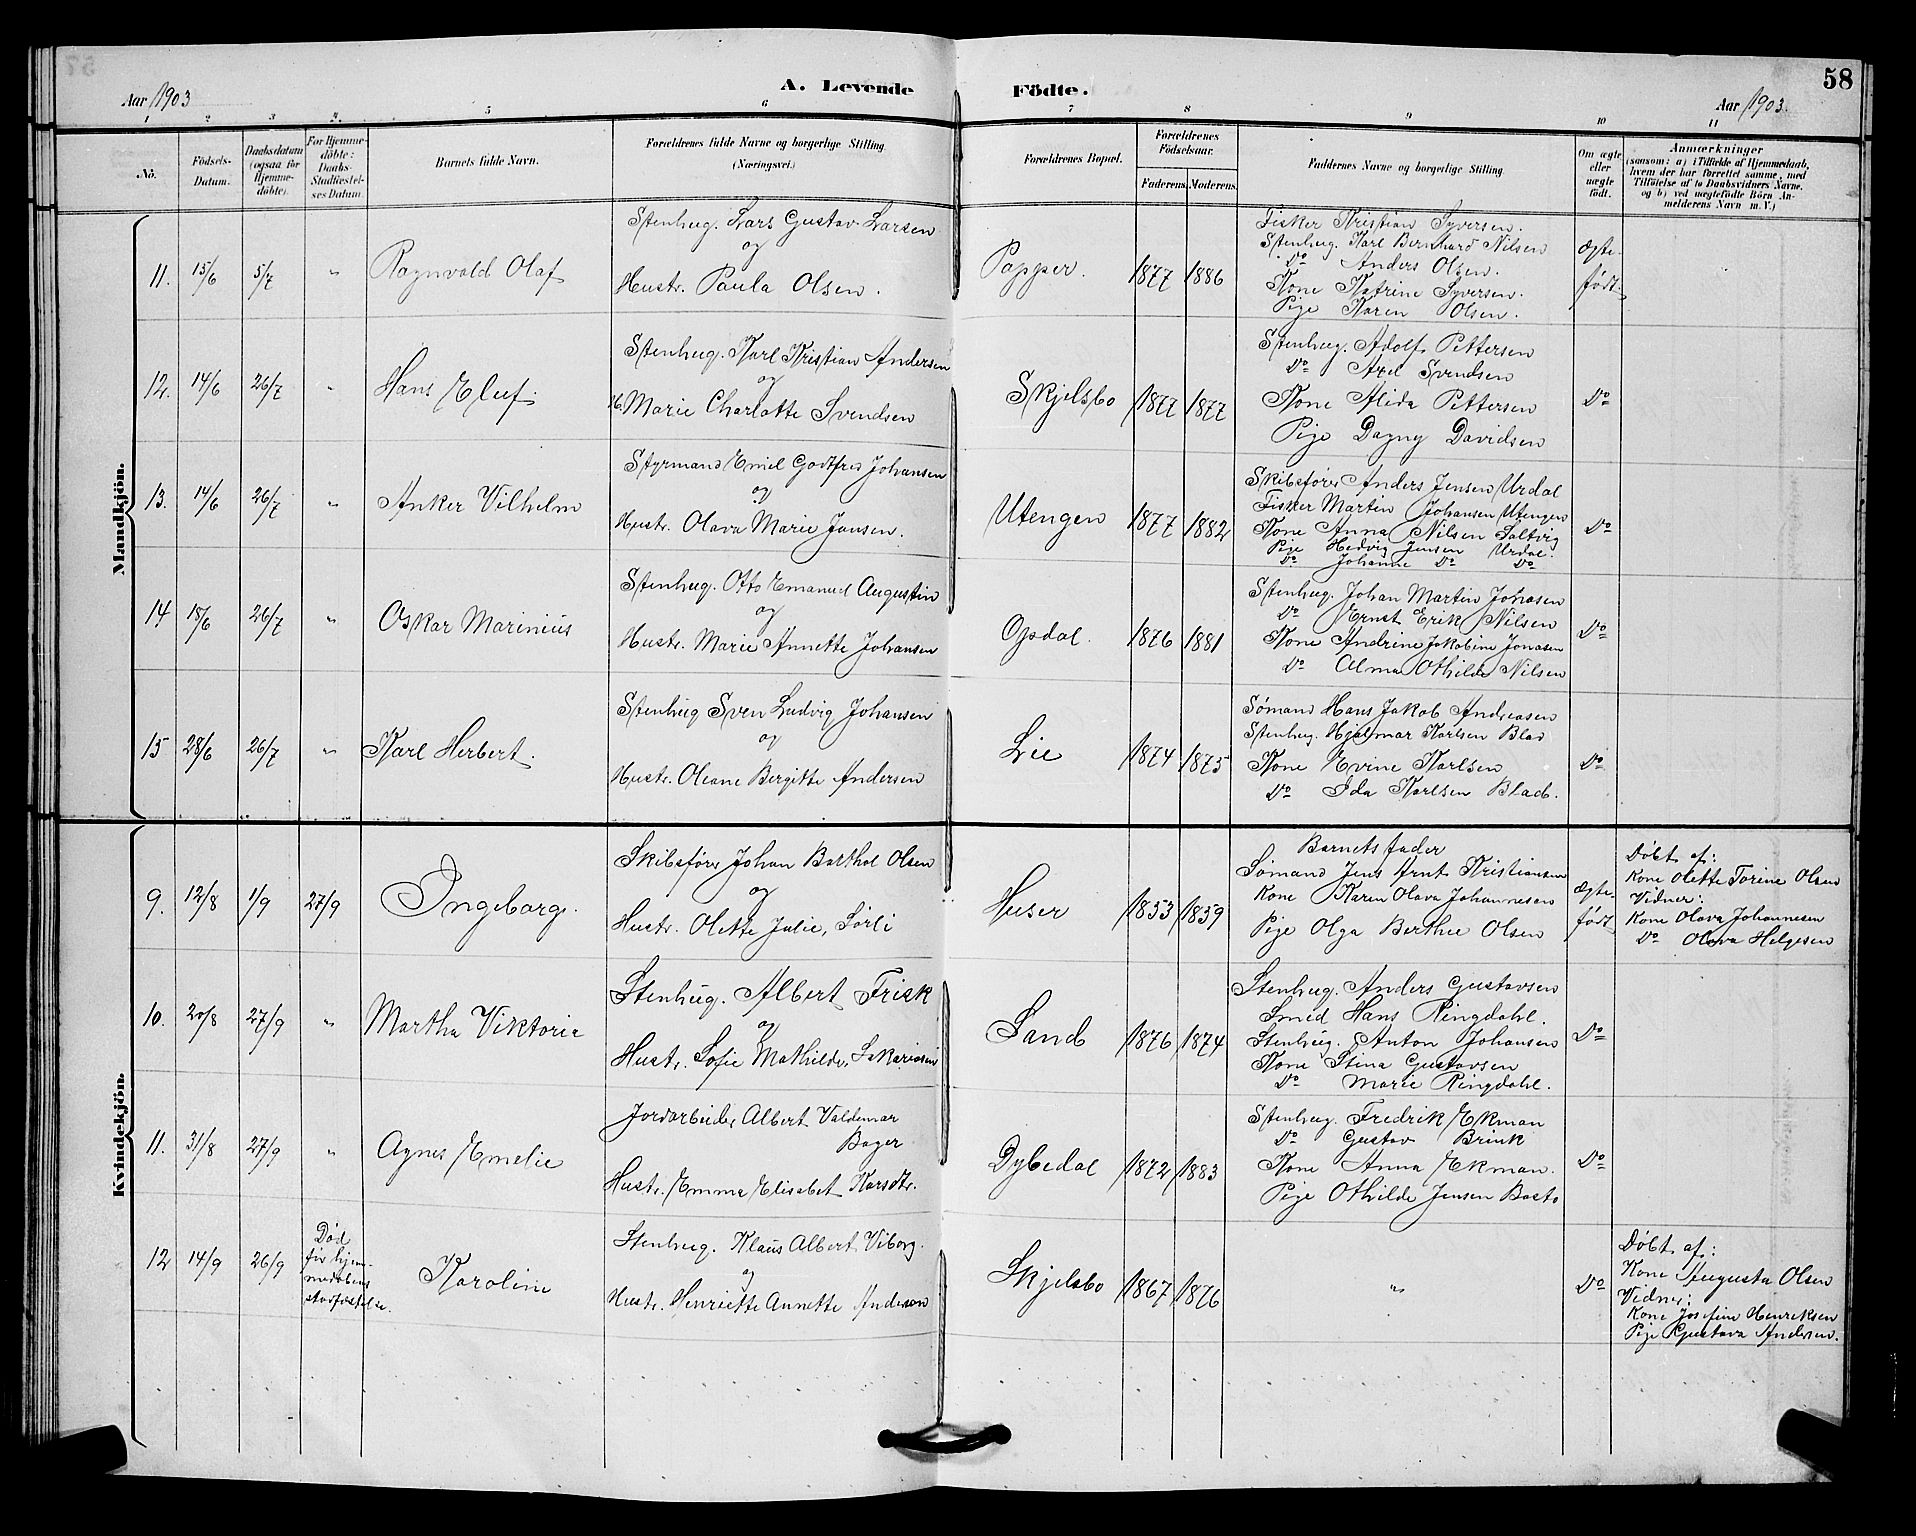 58
Aar 1903
A. Levende Födte.
Aar 1903.
1 2 3 4. 5 6 7 8 9 10 11
No.
Födsels-
Datum.
Daabsdatum
(ogsaa for
Hjemme-
döbte).
For Hjemme-
döbte:
Daabs-
Stadfæstel-
ses Datum
Barnets fulde Navn.
Forældrenes fulde Navne og borgerlige Stilling
(Næringsvei.)
Forældrenes Bopæl.
Forældrenes
Födselsaar.
Faderens. Moderens.
Faddernes Navne og borgerlige Stilling
Om ægte
eller
uægte
födt.
Anmærkninger
(saasom: a) i Tilfælde af Hjemmedaab,
hvem der har forrettet samme, med
Tilföielse af to Daabsvidners Navne,
og b) ved uægtefödte Börn An-
melderens Navn m. V.)
Mandkjön.
11. 15/6 5/7 "
Ragnvald Olaf
Stenhug. Lars Gustav Larsen
og
Hustr. Paula Olsen.
Papper. 1877 1886
Fisker Kristian Syversen.
Stenhug. Karl Bernhard Nilsen
Do Anders Olsen.
Kone Katrine Syversen.
Pige Karen Olsen.
Ægte-
født
12. 14/6 26/7 "
Hans Eluf.
Stenhug. Karl Kristian Andersen
og
H. Marie Charlotte Svendsen
Skjelsbo 1877 1877
Stenhug. Adolf Pettersen
Do Axel Svendsen
Kone Alida Pettersen
Pige Dagny Davidsen
Do
13. 14/6 26/7 "
Anker Vilhelm
Styrmand Emil Godtfred Johansen
og
Hustr. Olava Marie Jansen.
Utengen 1877 1882
Skibsfører Anders Jensen Urdal
Fisker Martin Johansen Utengen
Kone Anna Nilsen Saltvig
Pige Hedvig Jensen Urdal.
Do Johanne Do Do
Do
14. 18/6 26/7 "
Oskar Marinius
Stenhug. Otto Emanuel Augustin
og
Hustr. Marie Annette Johansen
Opdal. 1876 1881
Stenhug. Johan Martin Jonasen
Do Ernst Erik Nilsen
Kone Andrine Jakobine Jonasen
Do Alma Othilde Nilsen
Do
15 28/6 26/7 "
Karl Herbert.
Stenhug Sven Ludvig Johansen
og
Hustr. Oleane Bergitte Andersen
Lie 1874 1875
Sømand Hans Jakob Andreasen
Stenhug. Hjalmar Karlsen Blad
Kone Evine Karlsen
Do Ida Karlsen Blad.
Do
Kvindekjön.
9. 12/8 1/9 27/9
Ingeborg.
Skibsfører Johan Barthol Olsen
og
Hustr. Olette Julie, Sørli
Huser 1853 1859
Barnets fader
Sømand Jens Arnt Kristiansen
Kone Karen Olava Johannesen
Pige Olga Berthee Olsen
Ægte-
født
Døbt af:
Kone Olette Torine Olsen
Vidner:
Kone Olava Johannesen
Do Olava Helgesen
10. 20/8 27/9 "
Martha Viktoria
Stenhug. Albert Frisk
og
Hustr. Sofie Mathilde, Sakariasen
Sand 1876 1874
Stenhug. Anders Gustavsen
Smed Hans Ringdahl.
Stenhug. Anton Johansen
Kone Stina Gustavsen
Do Marie Ringdahl.
Do
11. 31/8 27/9 "
Agnes Emelie
Jordarbeider Albert Valdemar
Bager
Hustr. Emma Elisabet Karsdtr.
Dybedal 1872 1883
Stenhug. Fredrik Ekman
Do Gustav Brink
Kone Anna Ekman.
Pige Othilde Jensen Basto
Do
12 14/9 26/9
Død
før hjem-
medabens
stadfæstelse.
Karoline
Stenhug. Klaus Albert Viborg.
og
Hustr. Henriette Annette Andersen
Skjelsbo 1867 1876
"
Do
Døbt af:
Kone Augusta Olsen
Vidner:
Kone Josefine Henriksen
Pige Gustava Andersen.